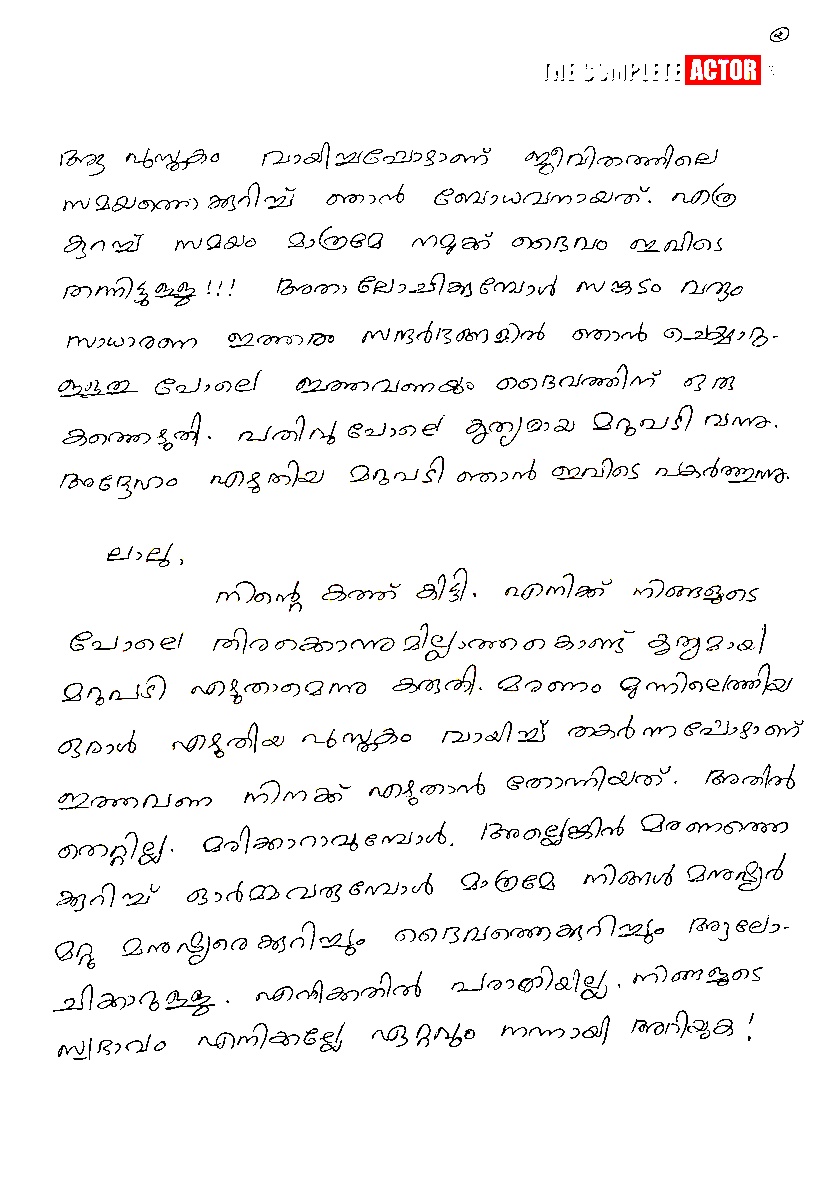 ൨
THE COMPLETE ACTOR
ആ പുസ്തകം വായിച്ചപ്പോഴാണ് ജീവിതത്തിലെ
സമയത്തെക്കുറിച്ച് ഞാൻ ബോധവനായത്. എത്ര
കുറച്ച് സമയം മാത്രമേ നമുക്ക് ദൈവം ഇവിടെ
തന്നിട്ടുള്ളൂ!!! അതാലോചിക്കുമ്പോൾ സങ്കടം വരും
സാധാരണ ഇത്തരം സന്ദർഭങ്ങളിൽ ഞാൻ ചെയ്യാറു-
ള്ളതു പോലെ ഇത്തവണയും ദൈവത്തിന് ഒരു
കത്തെഴുതി. പതിവുപോലെ കൃത്യമായ മറുപടി വന്നു.
അദ്ദേഹം എഴുതിയ മറുപടി ഞാൻ ഇവിടെ പകർത്തുന്നു.
ലാലു,
നിന്റെ കത്ത് കിട്ടി. എനിക്ക് നിങ്ങളുടെ
പോലെ തിരക്കൊന്നുമില്ലാത്തതുകൊണ്ട് കൃത്യമായി
മറുപടി എഴുതാമെന്നു കരുതി. മരണം മുന്നിലെത്തിയ
ഒരാൾ എഴുതിയ പുസ്തകം വായിച്ച് തകർന്നപ്പോഴാണ്
ഇത്തവണ നിനക്ക് എഴുതാൻ തോന്നിയത്. അതിൽ
തെറ്റില്ല. മരിക്കാറാവുമ്പോൾ, അല്ലെങ്കിൽ മരണത്തെ
ക്കുറിച്ച് ഓർമ്മവരുമ്പോൾ മാത്രമേ നിങ്ങൾ മനുഷ്യർ
മറ്റു മനുഷ്യരെക്കുറിച്ചും ദൈവത്തെക്കുറിച്ചും ആലോ-
ചിക്കാറുള്ളൂ. എനിക്കതിൽ പരാതിയില്ല. നിങ്ങളുടെ
സ്വഭാവം എനിക്കല്ലേ ഏറ്റവും നന്നായി അറിയുക!